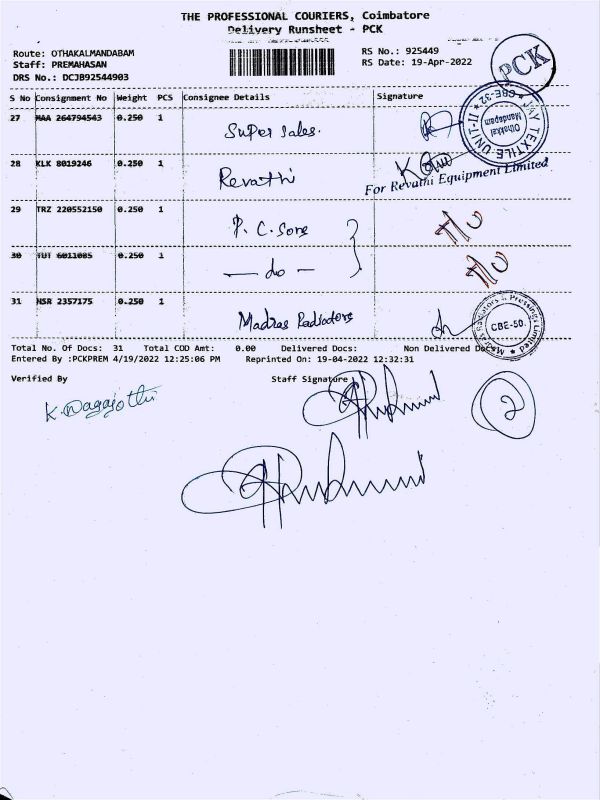 THE PROFESSIONAL COURIERS, Coimbatore
Delivery Runsheet - PCK
Route: OTHAKALMANDABAM
Staff: PREMAHASAN
DRS No.: DCJB92544903
RS No.: 925449
RS Date: 19-Apr-2022
PCK
S No Consignment No Weight PCS Consignee Details Signature
27 MAA 264794543 0.250 1 Super Sales.
JAY TEXTILE UNIT-II CBE-32
Othakkal Mandapam
28 KLK 8019246 0.250 1 Revathi
For Revathi Equipment Limited
29 TRZ 220552150 0.250 1 P. C. Sons
30 TUT 6011085 0.250 1 — do —
31 HSR 2357175 0.250 1 Madras Radiators
Madras Radiators & Pressings Limited
CBE-50.
Total No. Of Docs: 31 Total COD Amt: 0.00 Delivered Docs: Non Delivered Docs:
Entered By :PCKPREM 4/19/2022 12:25:06 PM Reprinted On: 19-04-2022 12:32:31
Verified By Staff Signature
K. Nagajothi
2